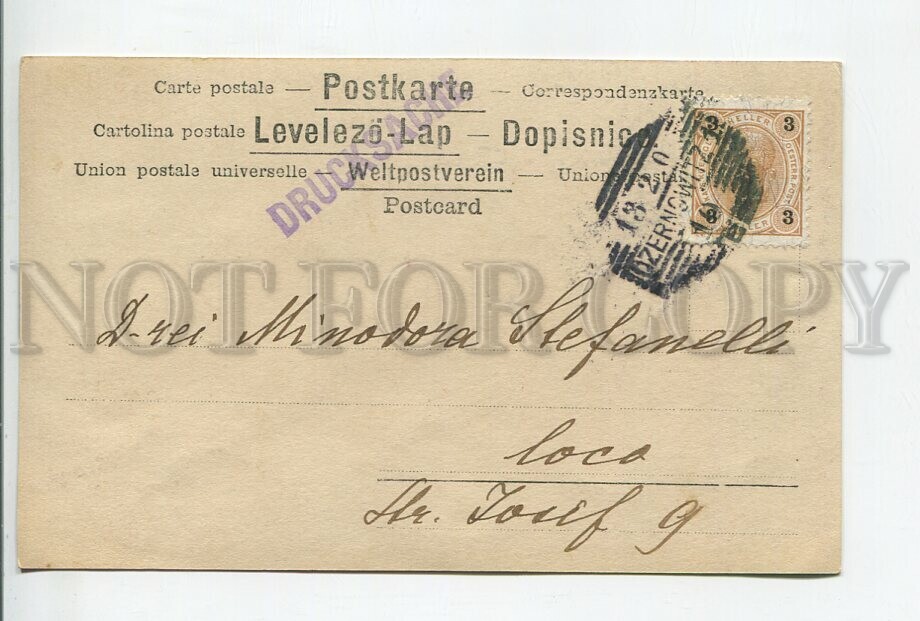 Carte postale — Postkarte — Correspondenzkarte
Cartolina postale Levelező-Lap — Dopisnice
Union postale universelle — Weltpostverein — Union postale
Postcard
DRUCKSACHE
3 HELLER 3
3 3
13 2 0
CZERNOWITZ
NOT FOR COPY
D-rei Minodora Stefanelli
loco
Str. Iosif 9